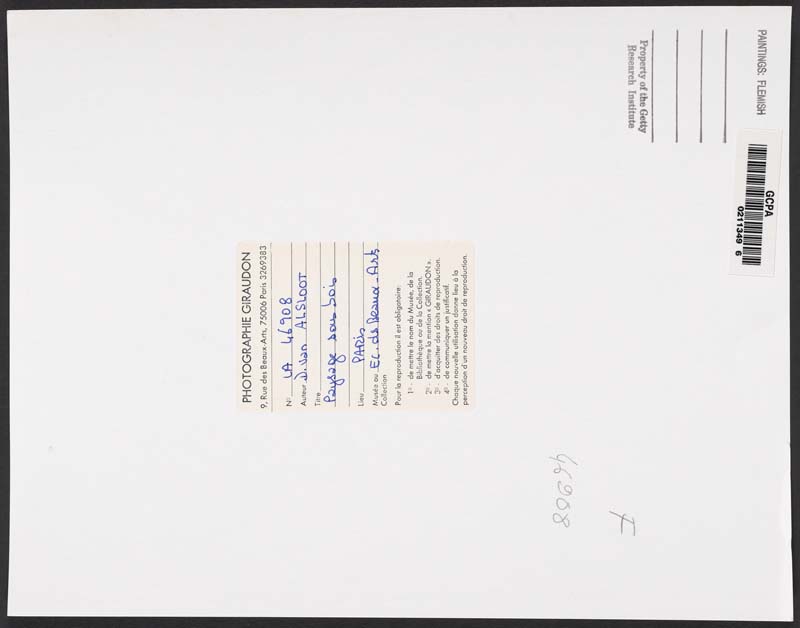 PAINTINGS: FLEMISH
Property of the Getty
Research Institute
GCPA
0211349 6
PHOTOGRAPHIE GIRAUDON
9, Rue des Beaux-Arts, 75006 Paris 3269383
N° LA 46908
Auteur D. Van ALSLOOT
Titre
Paysage sous bois
Lieu PARIS
Musée ou Ec. de Beaux-Arts
Collection
Pour la reproduction il est obligatoire:
1° - de mettre le nom du Musée, de la
Bibliothèque ou de la Collection.
2° - de mettre la mention « GIRAUDON ».
3° - d'acquitter des droits de reproduction.
4° - de communiquer un justificatif.
Chaque nouvelle utilisation donne lieu à la
perception d'un nouveau droit de reproduction.
46908
F